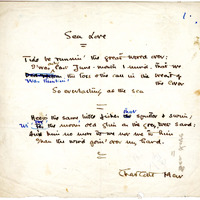 1.
Sea Love
Tide be runnin' the great world over:
'Twas last June month I mind that we
Was thinkin' the toss and the call in the breast of the lover
So everlastin' as the sea
Heer's the same little fishes that sputter & swim,
Wi' the moon's old glim on the grey, wet sand;
An' him no more to me nor me to him
Than the wind goin' over my hand.
Charlotte Mew